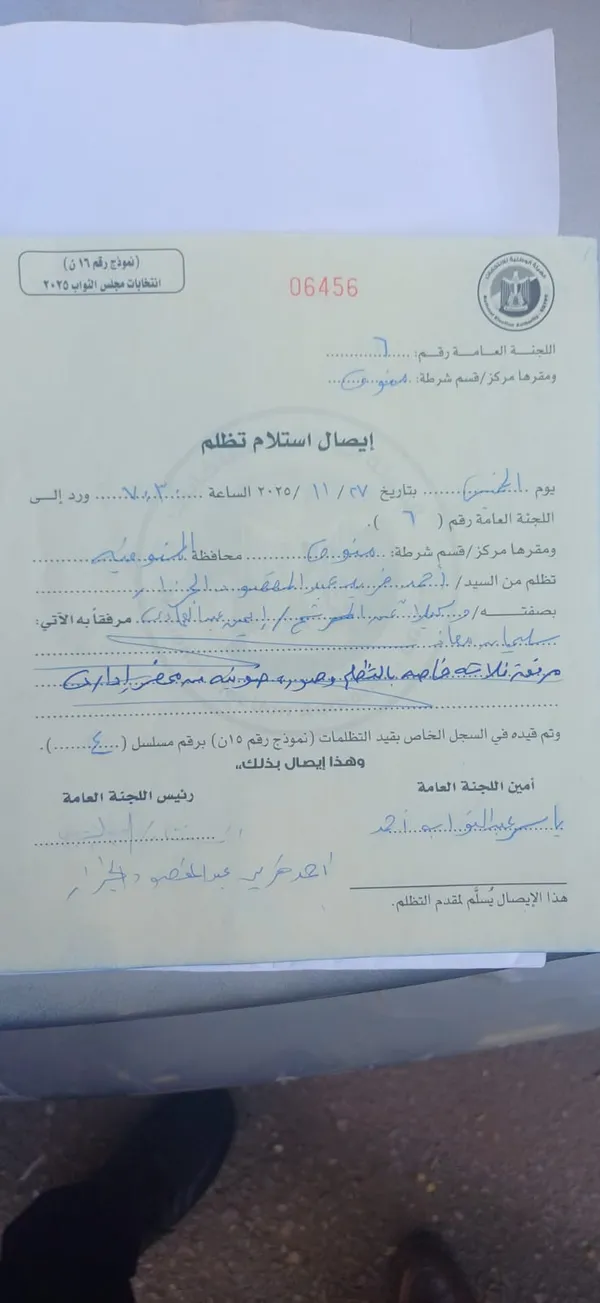 (نموذج رقم ١٦ ن)
انتخابات مجلس النواب ٢٠٢٥
06456
الهيئة الوطنية للانتخابات
National Election Authority
اللجنـة العـامـة رقـم: ٦
ومقرها مركز/قسم شرطة: منوف
إيصال استلام تظلم
يوم الخميس بتاريخ ٢٧/ ١١ /٢٠٢٥ الساعة ٧,٣٠ ورد إلـى
اللجنة العامة رقم ( ٦ ).
ومقرها مركز/قسم شرطة: منوف محافظة المنوفية
تظلم من السيد/ أحمد فريد عبد المقصود الجزار
بصفتـه/ وكيلا عن المرشح / مرفقاً به الآتي:
مرفق ثلاثة خاصه بالتظلم وصوره ضوئيه من محضر إداري
وتم قيده في السجل الخاص بقيد التظلمات (نموذج رقم ١٥ن) برقم مسلسل ( ٤ ).
وهذا إيصال بذلك،،
أمين اللجنة العامة
رئيس اللجنة العامة
ياسر عبد التواب أحمد
أحمد فريد عبد المقصود الجزار
هذا الإيصال يُسلَّم لمقدم التظلم.